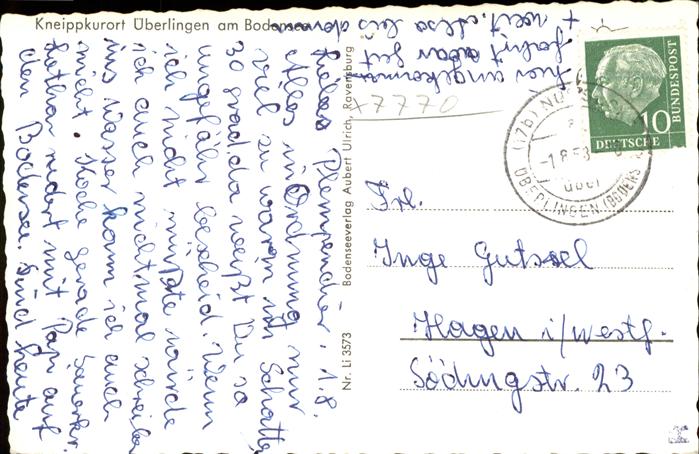 Kneippkurort Überlingen am Bodensee
Plempendier. 1.8.
Alles in Ordnung nur
viel zu warm im Schatten
30 grad, da weißt Du so
ungefähr bescheid. Wenn
ich nicht müßte würde
ich euch nicht mal schreiben
ins Wasser kann ich auch
nicht. Koche gerade
rudert mit Papi auf
den Bodensee. Sind heute
hier angekommen
Fahrt aber gut
+ weit. Also bis dann
x7770
Bodenseeverlag Aubert Ulrich, Ravensburg
Nr. Li 3573
10
DEUTSCHE
BUNDESPOST
(17b) NU
-1.8.58
über
ÜBERLINGEN (BODENS
Frl.
Inge Gutsel
Hagen i/Westf.
Södingstr. 23